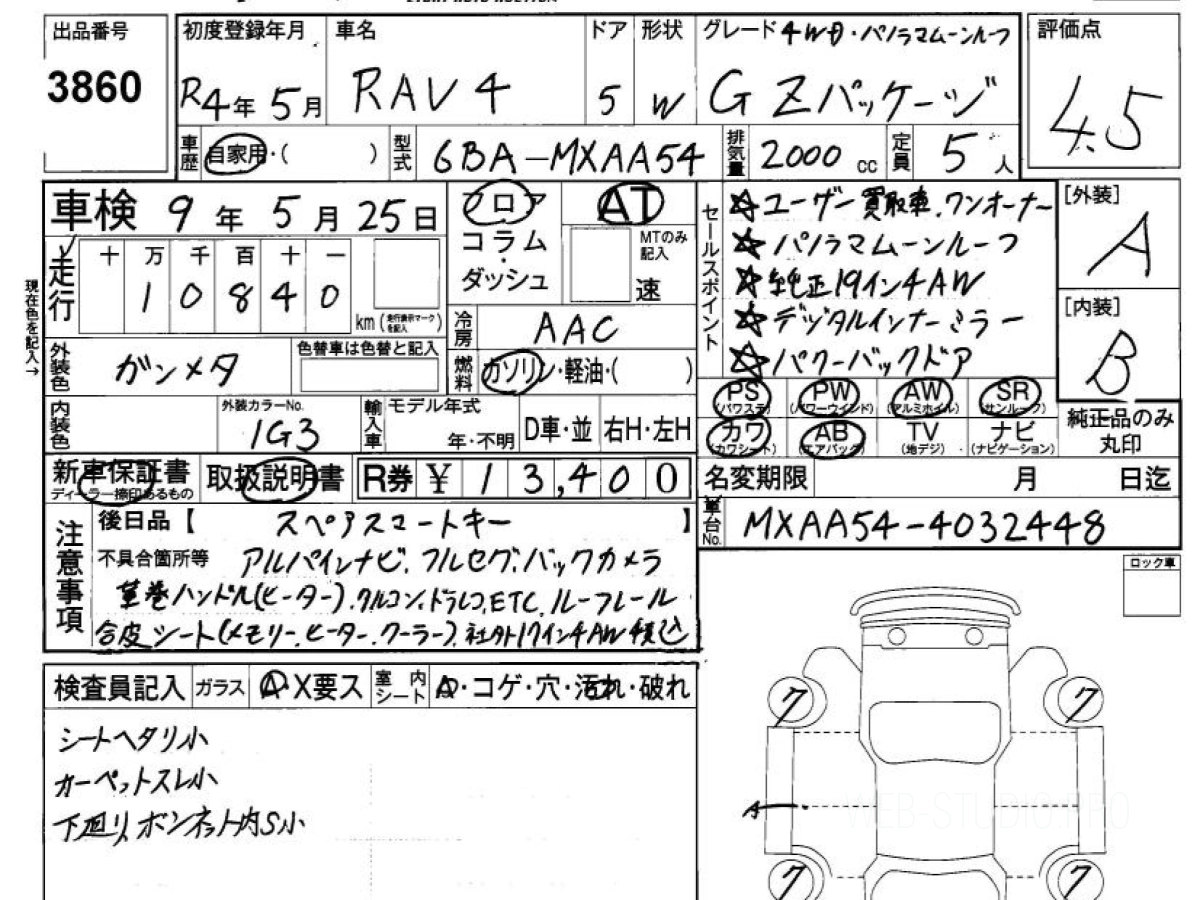 出品番号
3860
初度登録年月
R4年5月
車名
RAV4
ドア
5
形状
W
グレード 4WD・パノラマムーンルーフ
G Zパッケージ
評価点
4.5
車歴
自家用・( )
型式
6BA-MXAA54
排気量
2000 cc
定員
5人
車検 9年5月25日
フロア
コラム
・
ダッシュ
AT
MTのみ
記入
速
走行
十万千百十一
10840
km(走行表示マークを記入)
現在色を記入→
冷房
AAC
燃料
ガソリン・軽油・( )
セールスポイント
☆ユーザー買取車、ワンオーナー
☆パノラマムーンルーフ
☆純正19インチAW
☆デジタルインナーミラー
☆パワーバックドア
[外装]
A
[内装]
B
外装色
ガンメタ
色替車は色替と記入
内装色
外装カラーNo.
1G3
輸入車
モデル年式
年・不明
D車・並
右H・左H
PS
(パワステ)
PW
(パワーウインド)
AW
(アルミホイル)
SR
(サンルーフ)
カワ
(カワシート)
AB
(エアバッグ)
TV
(地デジ)
ナビ
(ナビゲーション)
純正品のみ
丸印
新車保証書
ディーラー捺印あるもの
取扱説明書
R券 ¥13,400
名変期限
月 日迄
車台No.
MXAA54-4032448
注意事項
後日品【 スペアスマートキー 】
不具合箇所等 アルパインナビ、フルセグ、バックカメラ
革巻ハンドル(ヒーター)、クルコン、ドラレコ、ETC、ルーフレール
合皮シート(メモリー、ヒーター、クーラー)、社外17インチAW積込
ロック車
検査員記入
ガラス
A・X要ス
室内シート
A・コゲ・穴・汚れ・破れ
シートヘタリ小
カーペットスレ小
下廻り、ボンネット内S小
ク
ク
A
ク
ク
WEB-STUDIO.PRO